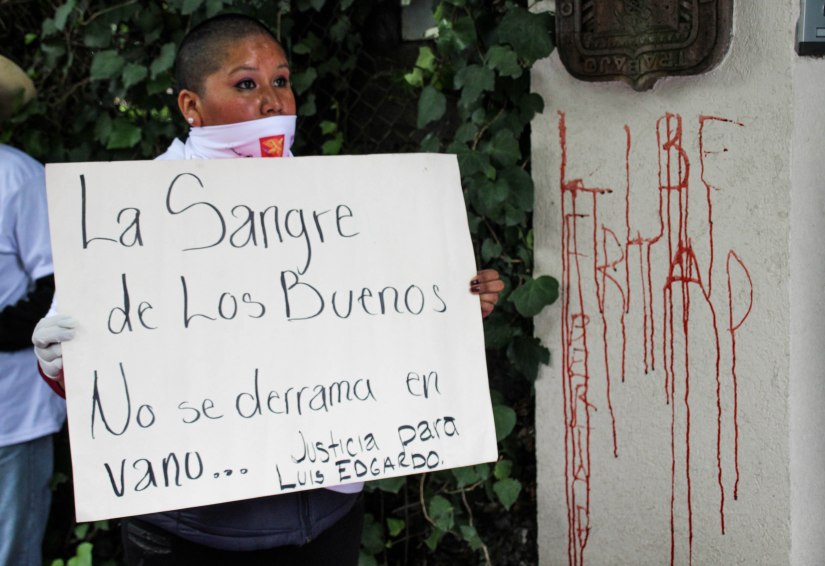 TRABAJO
La Sangre
de Los Buenos
No se derrama en
vano... Justicia para
LUIS EDGARDO.
LIBE
RTAD